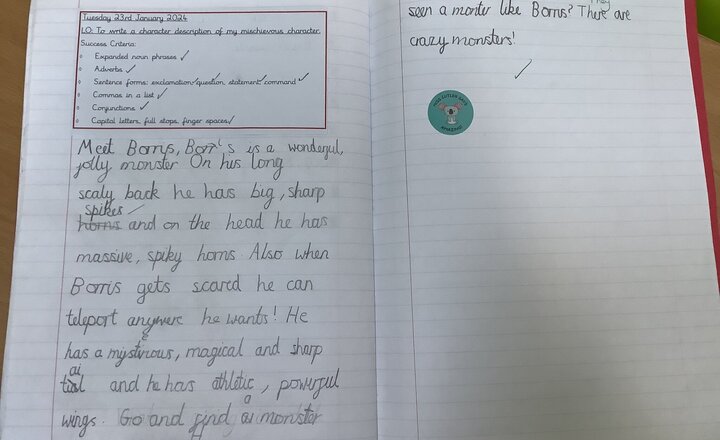 Tuesday 23rd January 2024
LO: To write a character description of my mischievous character.
Success Criteria:
Expanded noun phrases
Adverbs
Sentence forms: exclamation/question, statement/command
Commas in a list
Conjunctions
Capital letters, full stops, finger spaces
Meet Borris, Borri's is a wonderful,
jolly monster On his long
scaly back he has big, sharp
spikes
horns and on the head he has
massive, spiky horns Also when
Borris gets scared he can
teleport anywere he wants! He
has a mystirous, magical and sharp
ai
and he has athletic, powerful
wings. Go and find a monster
They
seen a monter like Borris? There are
crazy monsters!